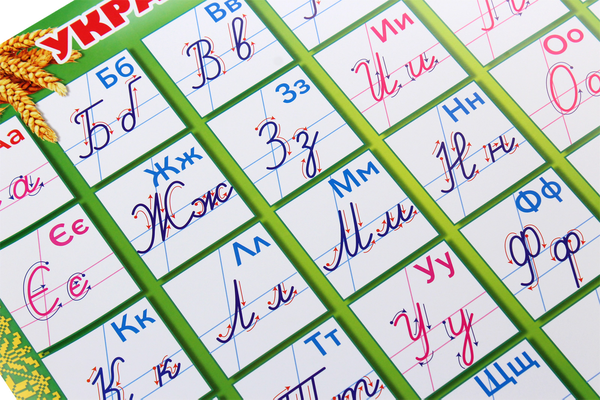 УКРА
Аа Бб Вв
а Бб Вв
Єє Жж Зз Ии
Єє Жж Зз Ии
Кк Лл Мм Нн Оо
Кк Лл Мм Нн Оо
Тт Уу Фф
Тт Уу Фф
Щщ